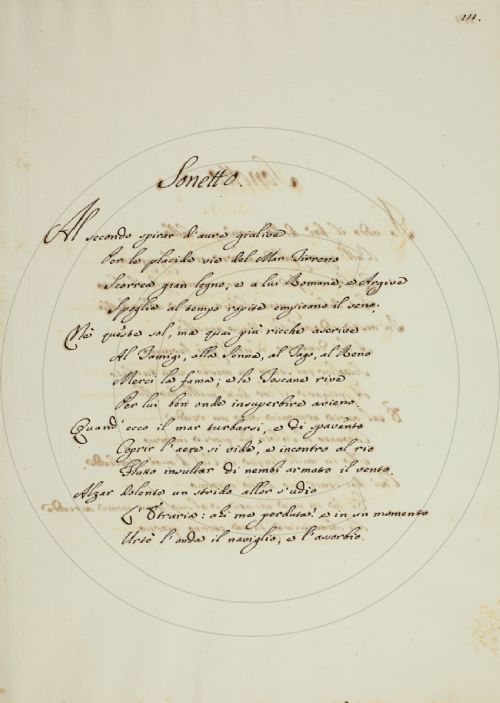 111.
Sonetto.
Al secondo spirar d'aure giulive
Per le placide vie del Mar Tirreno
Scorrea gran legno, e a lui Romane, e Argive
Spoglie al tempo rapite empieano il seno;
Nè queste sol, ma quai più ricche ascrive
Al Tamigi, alla Senna, al Tago, al Reno
Merci la fama; e le Toscane rive
Per lui ben onde insuperbire avieno.
Quand' ecco il mar turbarsi, e di spavento
Coprir l'aere si vide, e incontro al rio
Flutto insultar di nembi armato il vento.
Alzar dolente un strido allor s'udio
L'Etruria: ahi me perduta! e in un momento
Urtò l'onda il naviglio, e l'assorbio.